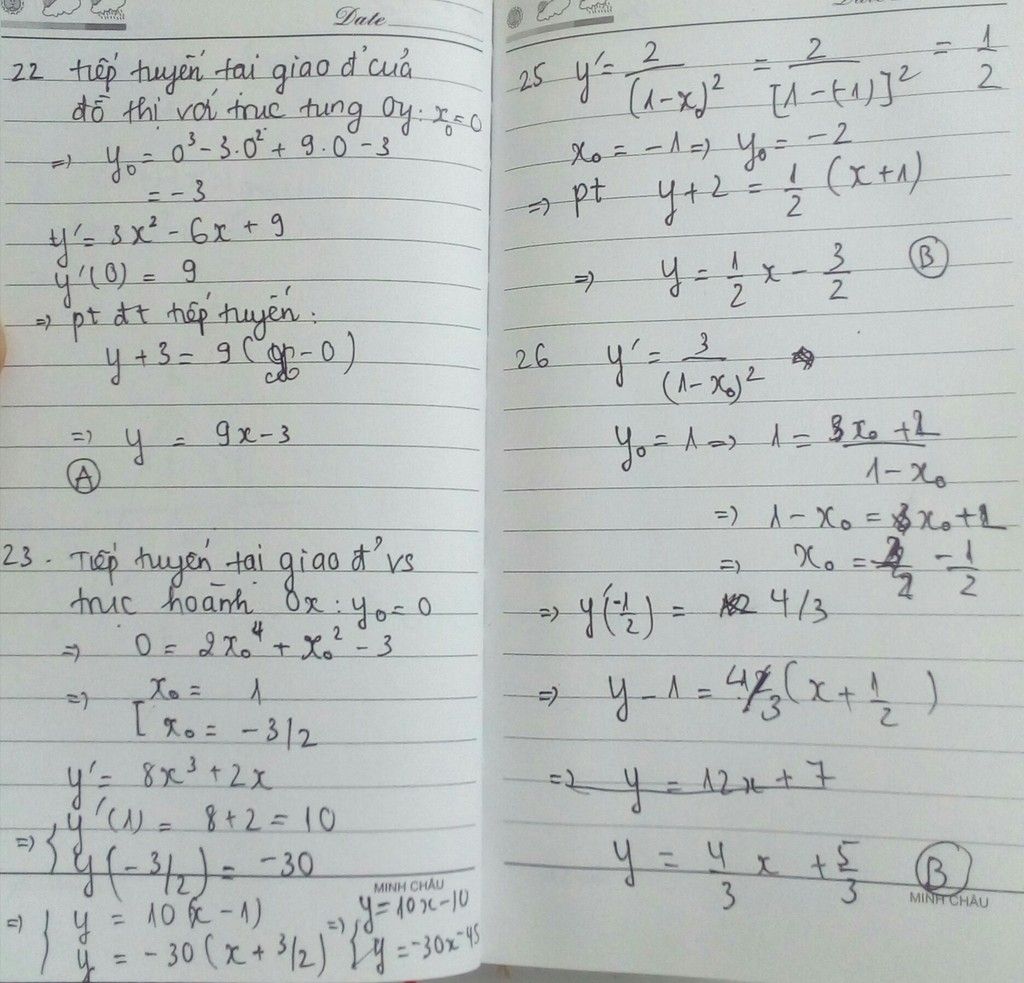 Date
22 tiếp tuyến tại giao đ' của
đồ thị với trục tung Oy: x₀=0
=> y₀ = 0³ - 3.0² + 9.0 - 3
= -3
y' = 3x² - 6x + 9
y'(0) = 9
=> pt đt tiếp tuyến:
y + 3 = 9( - 0)
=> y = 9x - 3
A
23. Tiếp tuyến tại giao đ' vs
trục hoành Ox: y₀ = 0
=> 0 = 2x₀⁴ + x₀² - 3
=> x₀ = 1
[ x₀ = -3/2
y' = 8x³ + 2x
=> { y'(1) = 8 + 2 = 10
y(-3/2) = -30
MINH CHÂU
=> { y = 10(x - 1) => { y = 10x - 10
y = -30(x + 3/2) y = -30x - 45
25 y' = 2/(1-x)² = 2/[1-(-1)]² = 1/2
x₀ = -1 => y₀ = -2
=> pt y + 2 = 1/2 (x + 1)
=> y = 1/2 x - 3/2 B
26 y' = 3/(1-x₀)²
y₀ = 1 => 1 = x₀ + 2/1 - x₀
=> 1 - x₀ = x₀ + 2
=> x₀ = -1/2
=> y'(-1/2) = 4/3
=> y - 1 = 4/3 (x + 1/2)
=> y = 12x + 7
y = 4/3 x + 5/3 B
MINH CHÂU